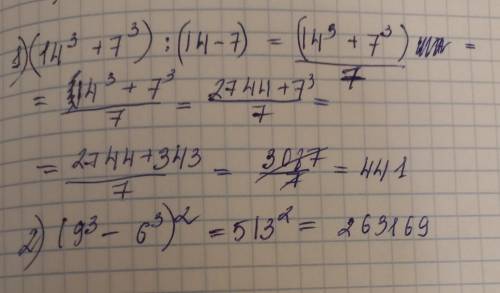 1) (14³ + 7³) : (14 - 7) = (14³ + 7³) / 7 =
= 14³ + 7³ / 7 = 2744 + 7³ / 7 =
= 2744 + 343 / 7 = 3087 / 7 = 441
2) (9³ - 6³)² = 513² = 263169